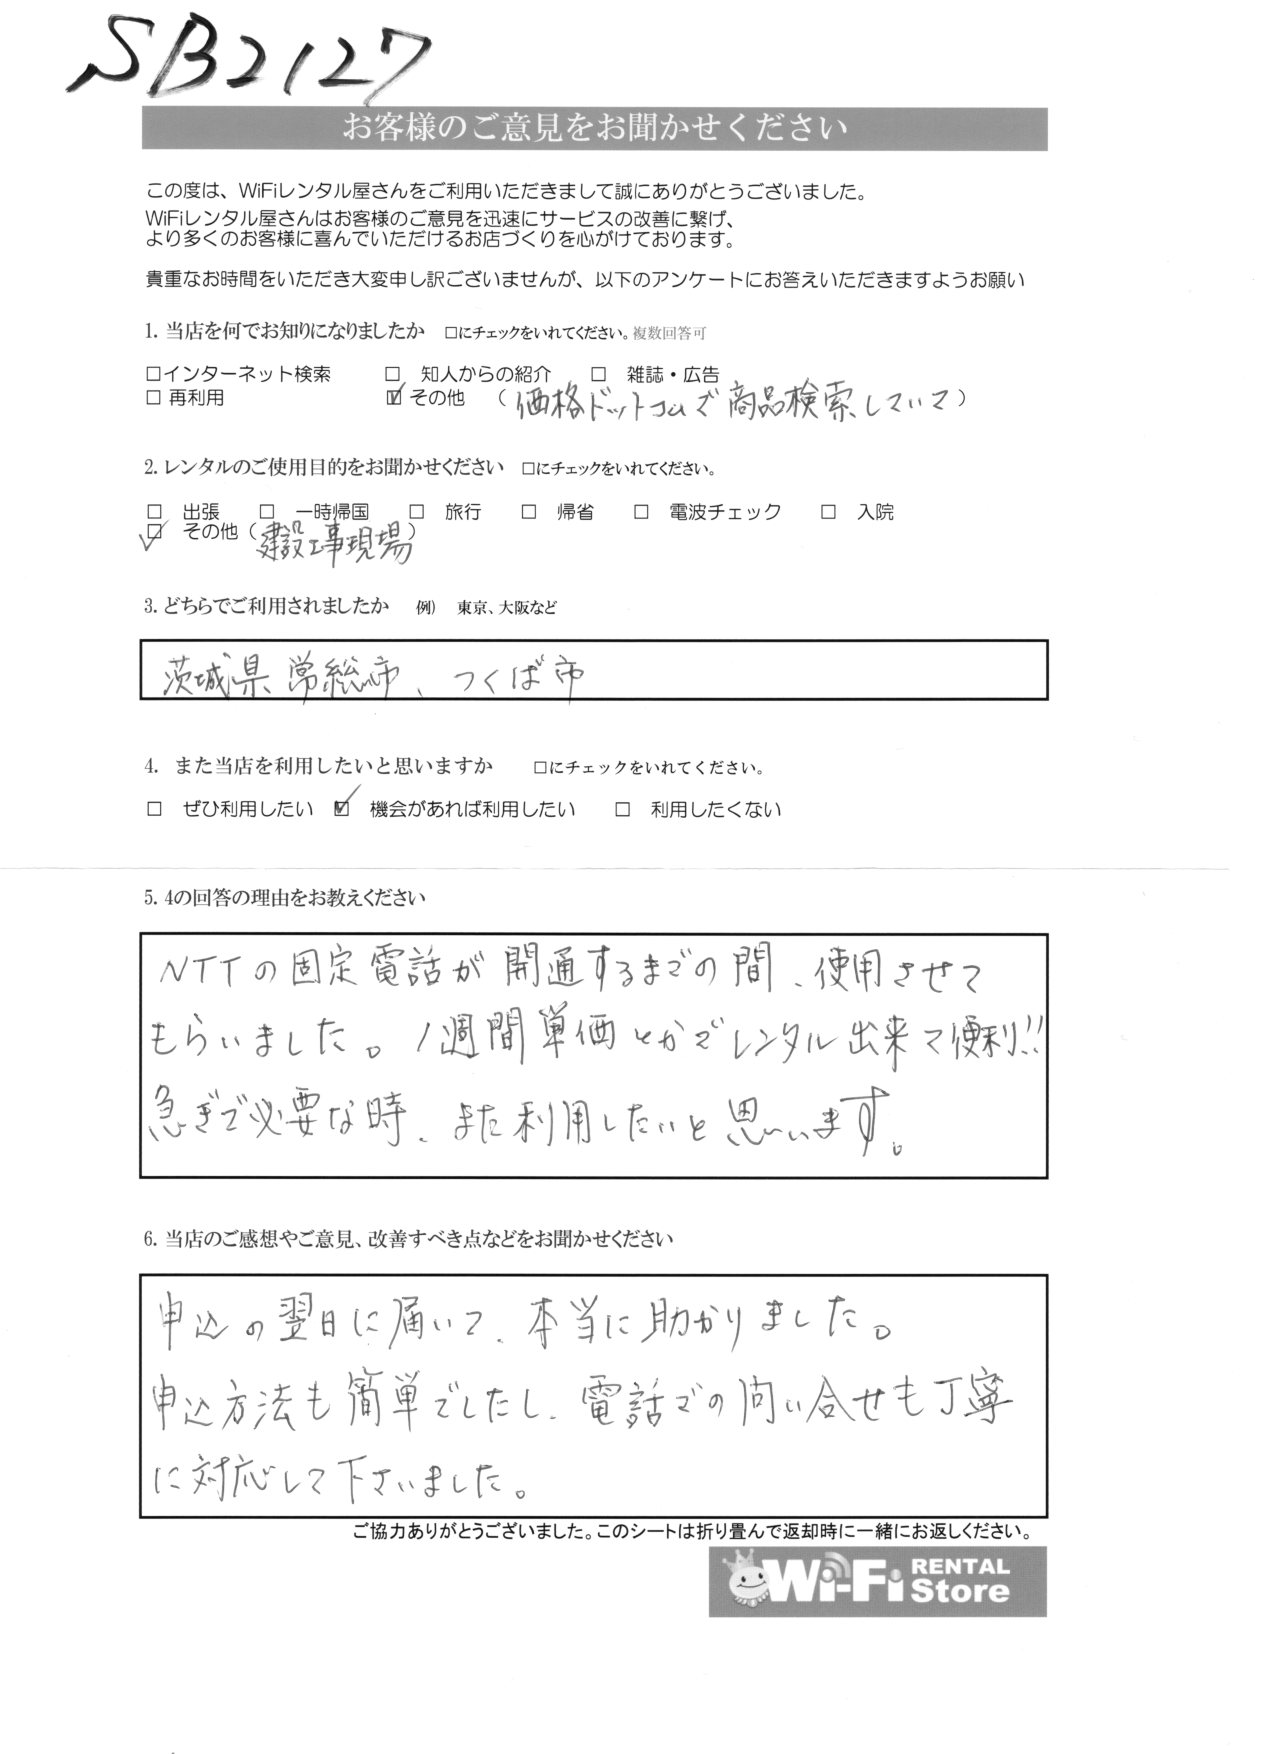 SB2127
お客様のご意見をお聞かせください
この度は、WiFiレンタル屋さんをご利用いただきまして誠にありがとうございました。
WiFiレンタル屋さんはお客様のご意見を迅速にサービスの改善に繋げ、
より多くのお客様に喜んでいただけるお店づくりを心がけております。
貴重なお時間をいただき大変申し訳ございませんが、以下のアンケートにお答えいただきますようお願い
1. 当店を何でお知りになりましたか □にチェックをいれてください。複数回答可
□インターネット検索 □ 知人からの紹介 □ 雑誌・広告
□ 再利用 ☑ その他 (価格ドットコムで商品検索していて)
2. レンタルのご使用目的をお聞かせください □にチェックをいれてください。
□ 出張 □ 一時帰国 □ 旅行 □ 帰省 □ 電波チェック □ 入院
☑ その他 (建設工事現場)
3. どちらでご利用されましたか 例) 東京、大阪など
茨城県常総市、つくば市
4. また当店を利用したいと思いますか □にチェックをいれてください。
□ ぜひ利用したい ☑ 機会があれば利用したい □ 利用したくない
5. 4の回答の理由をお教えください
NTTの固定電話が開通するまでの間、使用させて
もらいました。1週間単価とかでレンタル出来て便利!!
急ぎで必要な時、また利用したいと思います。
6. 当店のご感想やご意見、改善すべき点などをお聞かせください
申込の翌日に届いて、本当に助かりました。
申込方法も簡単でしたし、電話での問い合せも丁寧
に対応して下さいました。
ご協力ありがとうございました。このシートは折り畳んで返却時に一緒にお返しください。
Wi-Fi RENTAL Store